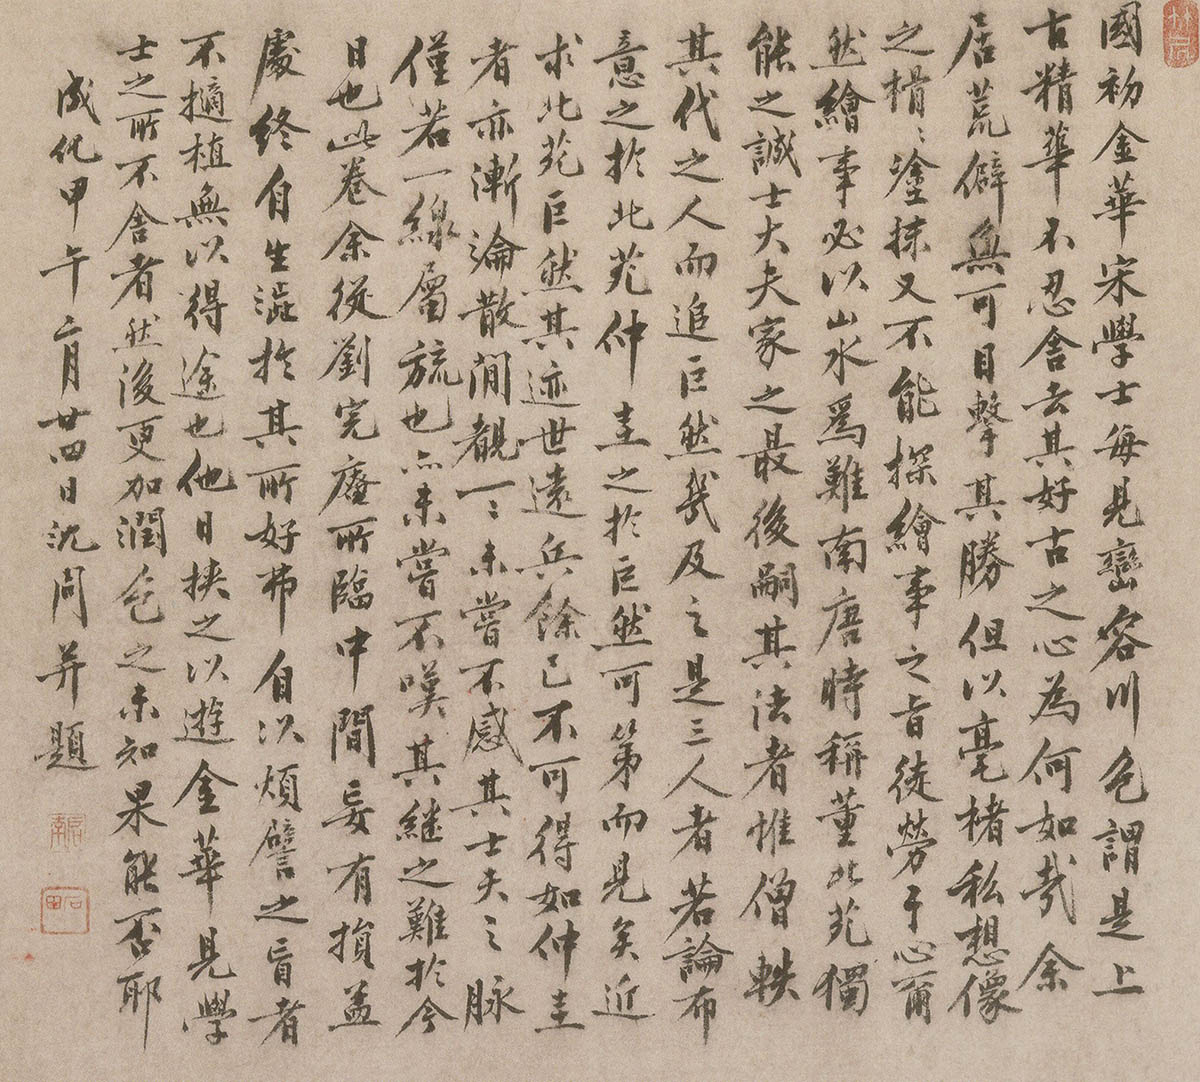 國初金華宋學士每見巒容川色謂是上
古精華不忍舍去其好古之心為何如哉余
居荒僻無可目擊其勝但以毫楮私想像
之榾〻塗抹又不能探繪事之旨徒勞于心爾
然繪事必以山水為難南唐時稱董北苑獨
能之誠士大夫家之最後嗣其法者惟僧軼
其代之人而追巨然幾及之是三人者若論布
意之於北苑仲圭之於巨然可第而見矣近
求北苑巨然其迹世遠兵餘已不可得如仲圭
者亦漸淪散間覩一〻未嘗不感其士夫之脉
僅若一線屬旒也亦未嘗不嘆其繼之難於今
日也此卷余從劉完庵所臨中間妄有損益
處終自生澁於其所好弗自以煩譬之盲者
不擿植無以得途也他日挾之以遊金華見學
士之所不舍者然後更加潤色之未知果能否耶
成化甲午二月廿四日沈周并題
啟南
石田